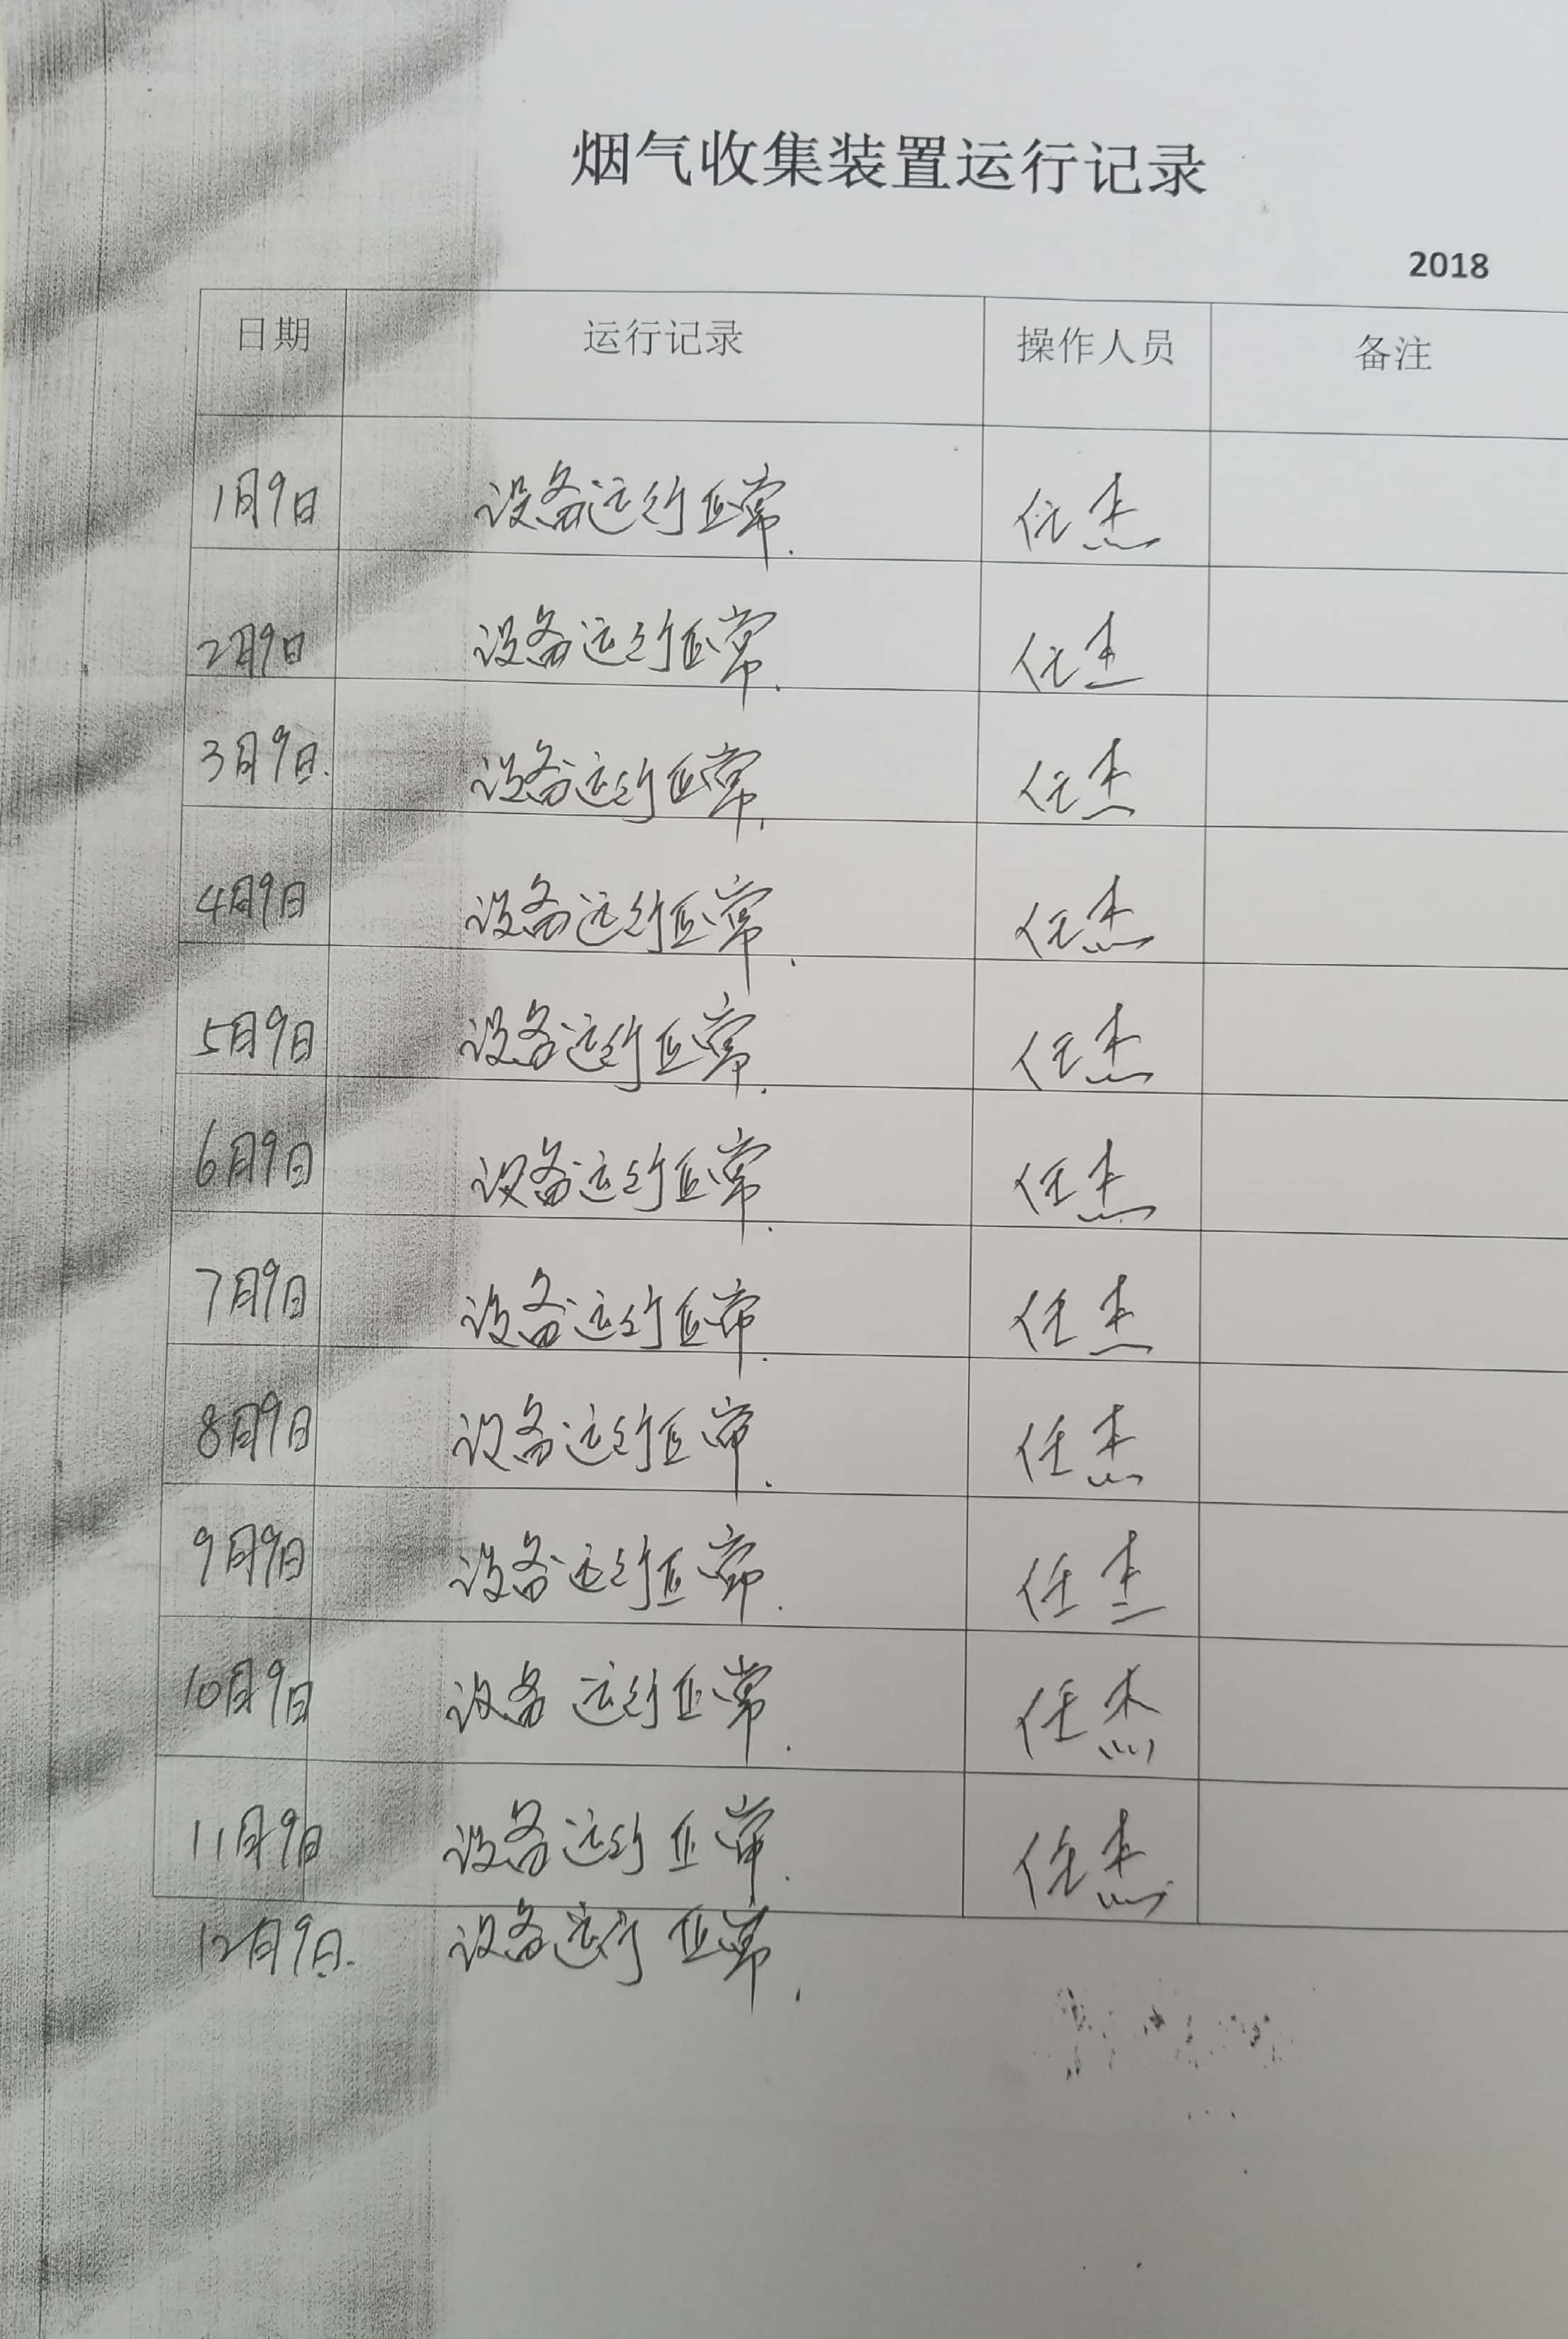 烟气收集装置运行记录
2018
日期 运行记录 操作人员 备注
1月9日 设备运行正常. 任杰
2月9日 设备运行正常. 任杰
3月9日. 设备运行正常. 任杰
4月9日 设备运行正常. 任杰
5月9日 设备运行正常. 任杰
6月9日 设备运行正常. 任杰
7月9日 设备运行正常. 任杰
8月9日 设备运行正常. 任杰
9月9日 设备运行正常. 任杰
10月9日 设备运行正常. 任杰
11月9日 设备运行正常. 任杰
12月9日. 设备运行正常.